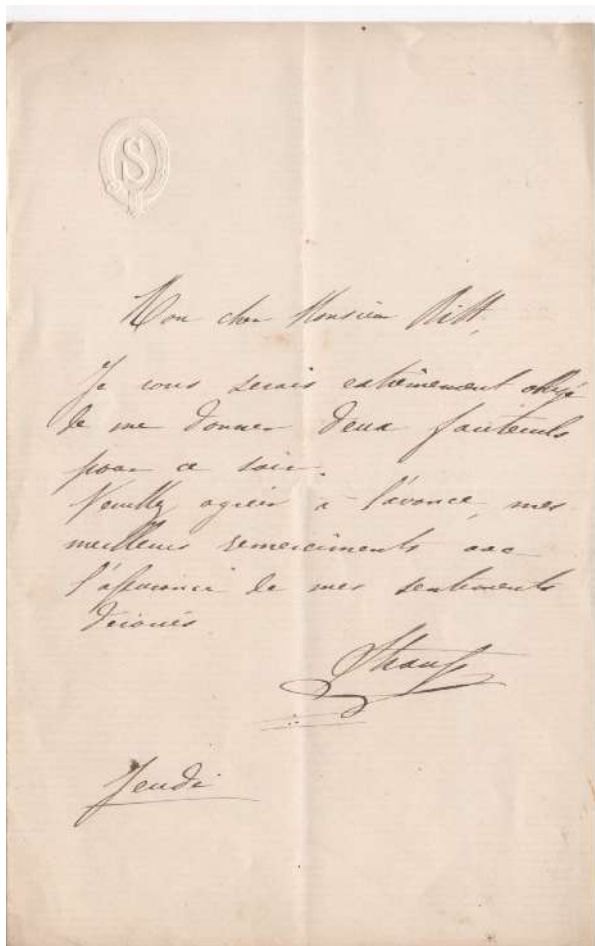 S
Mon cher Monsieur Ritt,
Je vous serais extrêmement obligé
de me donner deux fauteuils
pour ce soir.
Veuillez agréer à l'avance, mes
meilleurs remerciments avec
l'assurance de mes sentiments
dévoués
Strauss
Jeudi